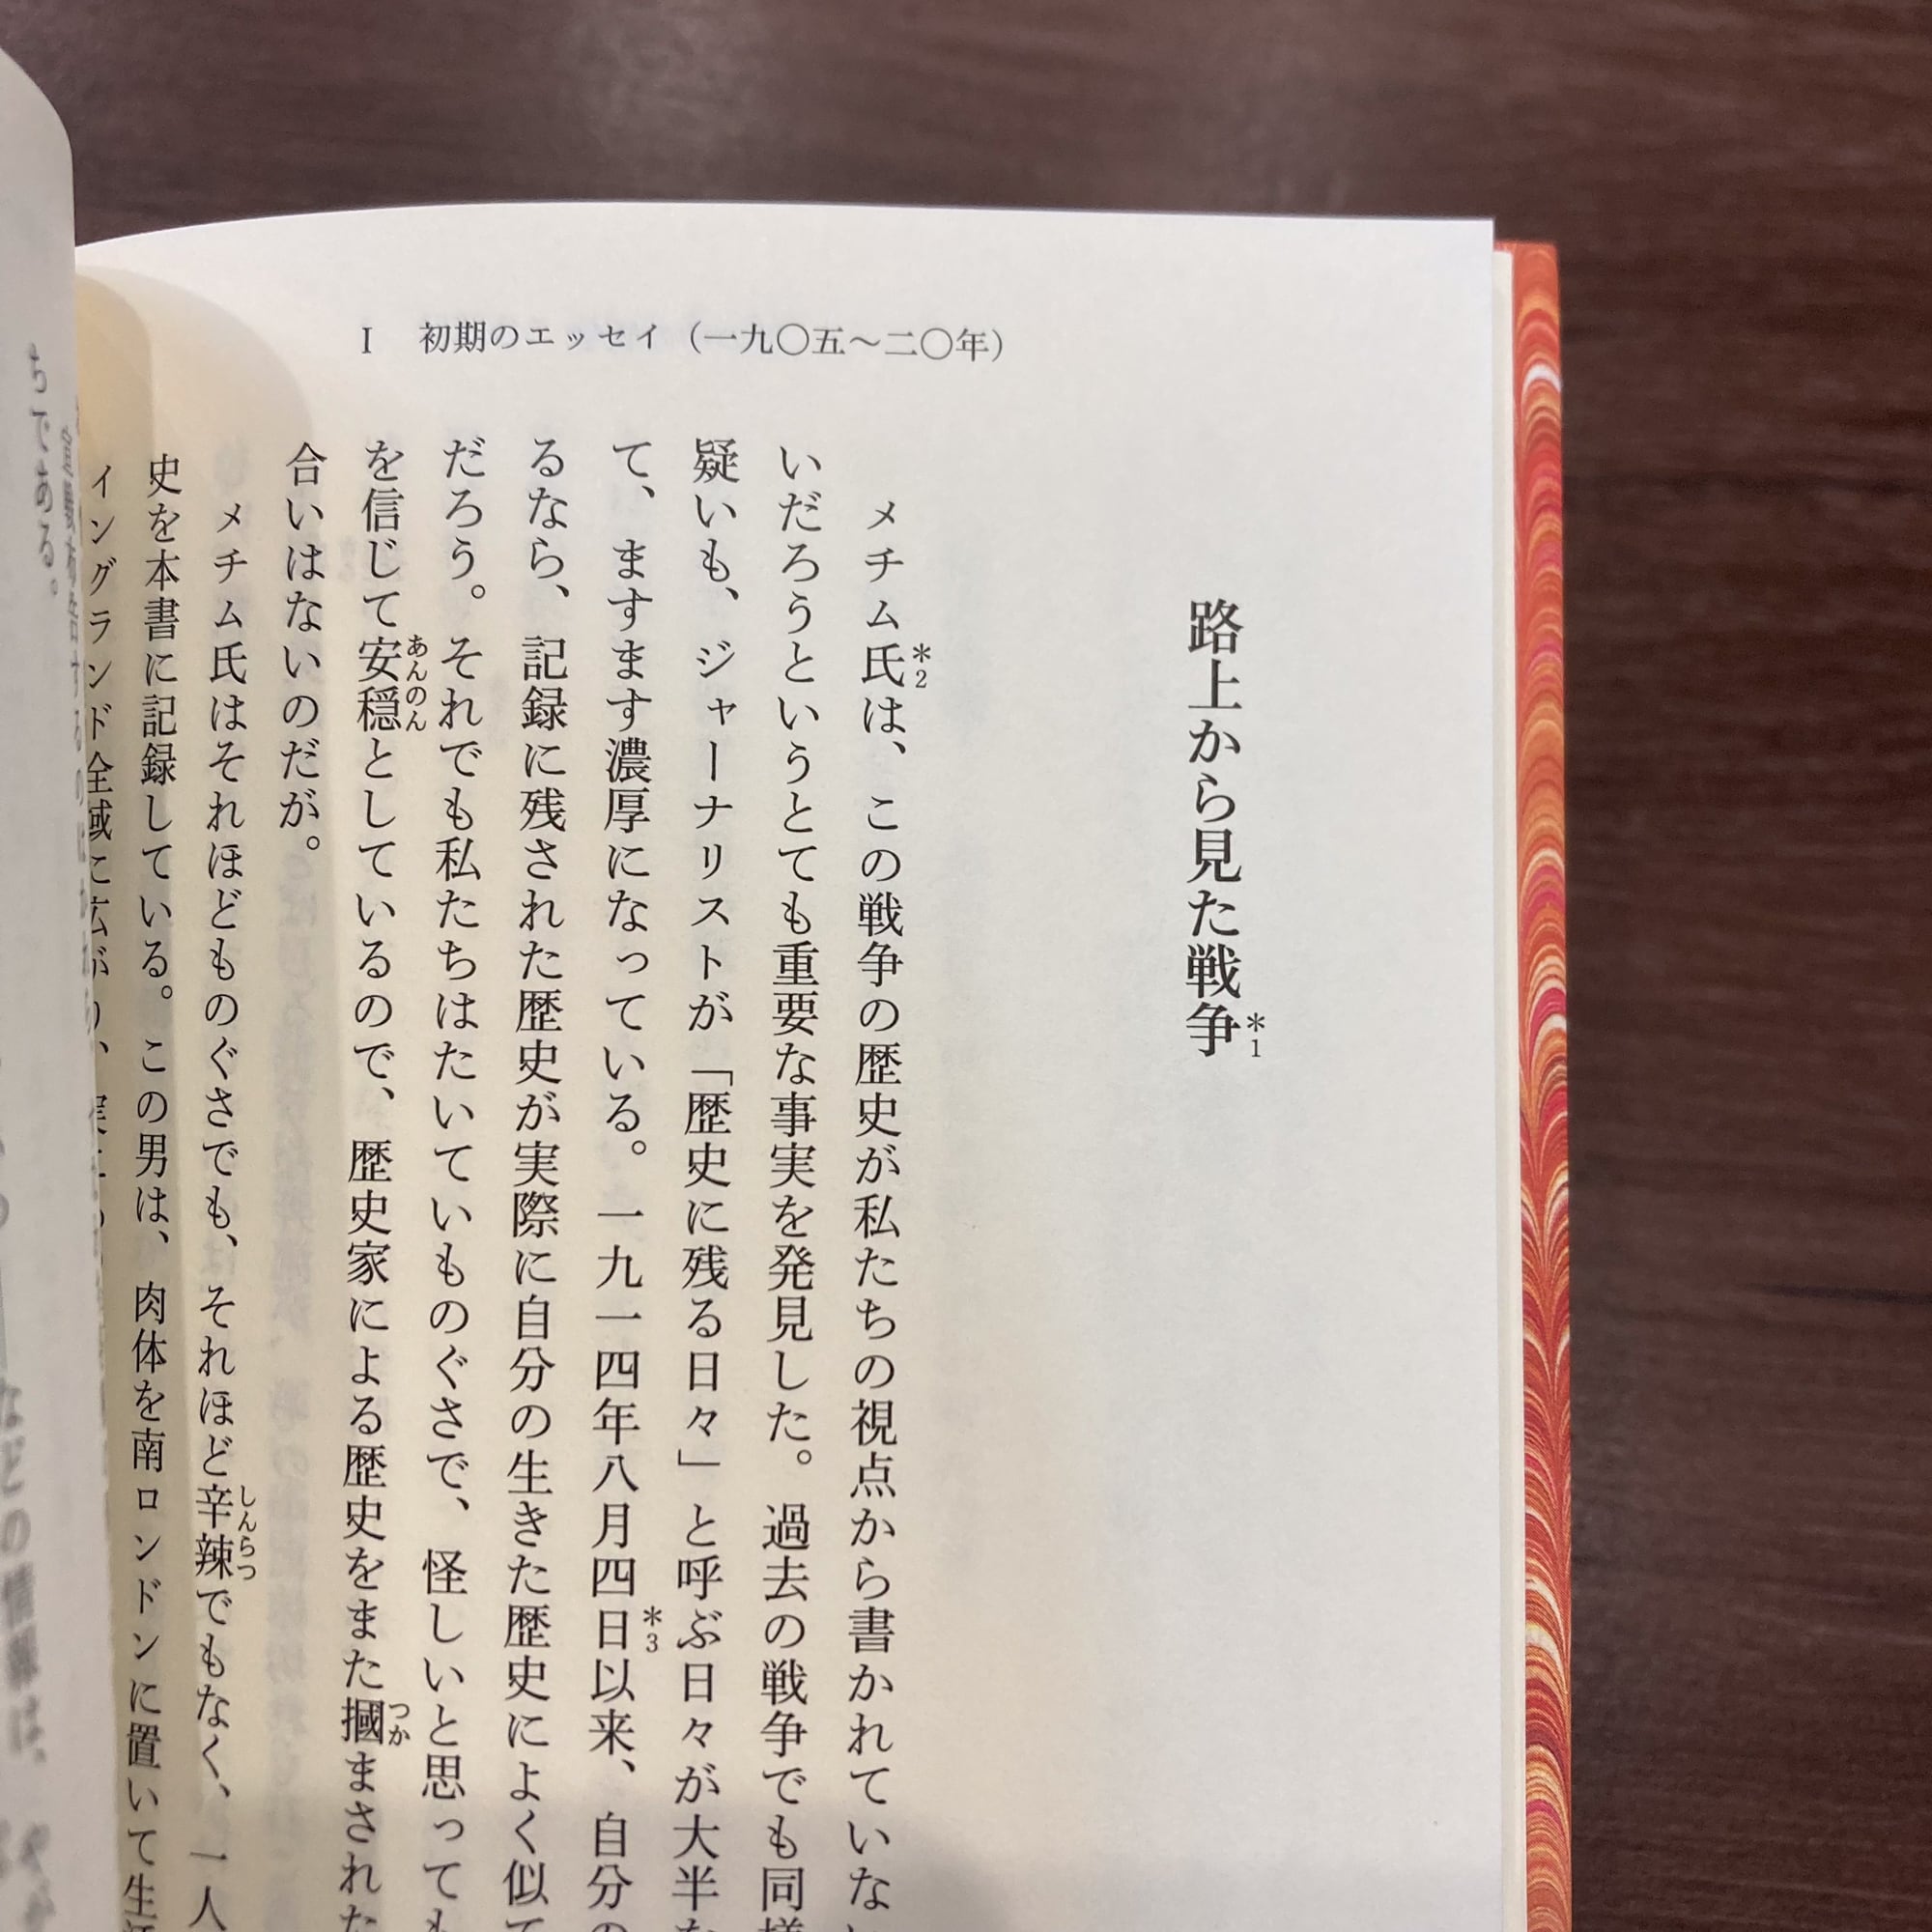 I 初期のエッセイ（一九〇五〜二〇年）
路上から見た戦争*1
メチム氏*2は、この戦争の歴史が私たちの視点から書かれていな
いだろうというとても重要な事実を発見した。過去の戦争でも同様
疑いも、ジャーナリストが「歴史に残る日々」と呼ぶ日々が大半
て、ますます濃厚になっている。一九一四年八月四日*3以来、自分の
るなら、記録に残された歴史が実際に自分の生きた歴史によく似て
だろう。それでも私たちはたいていものぐさで、怪しいと思っても
を信じて安穏あんのんとしているので、歴史家による歴史をまた摑つかまされた
合いはないのだが。
メチム氏はそれほどものぐさでも、それほど辛辣しんらつでもなく、一人
史を本書に記録している。この男は、肉体を南ロンドンに置いて生
イングランド全域に広がり、
ちである。
などの情報は、